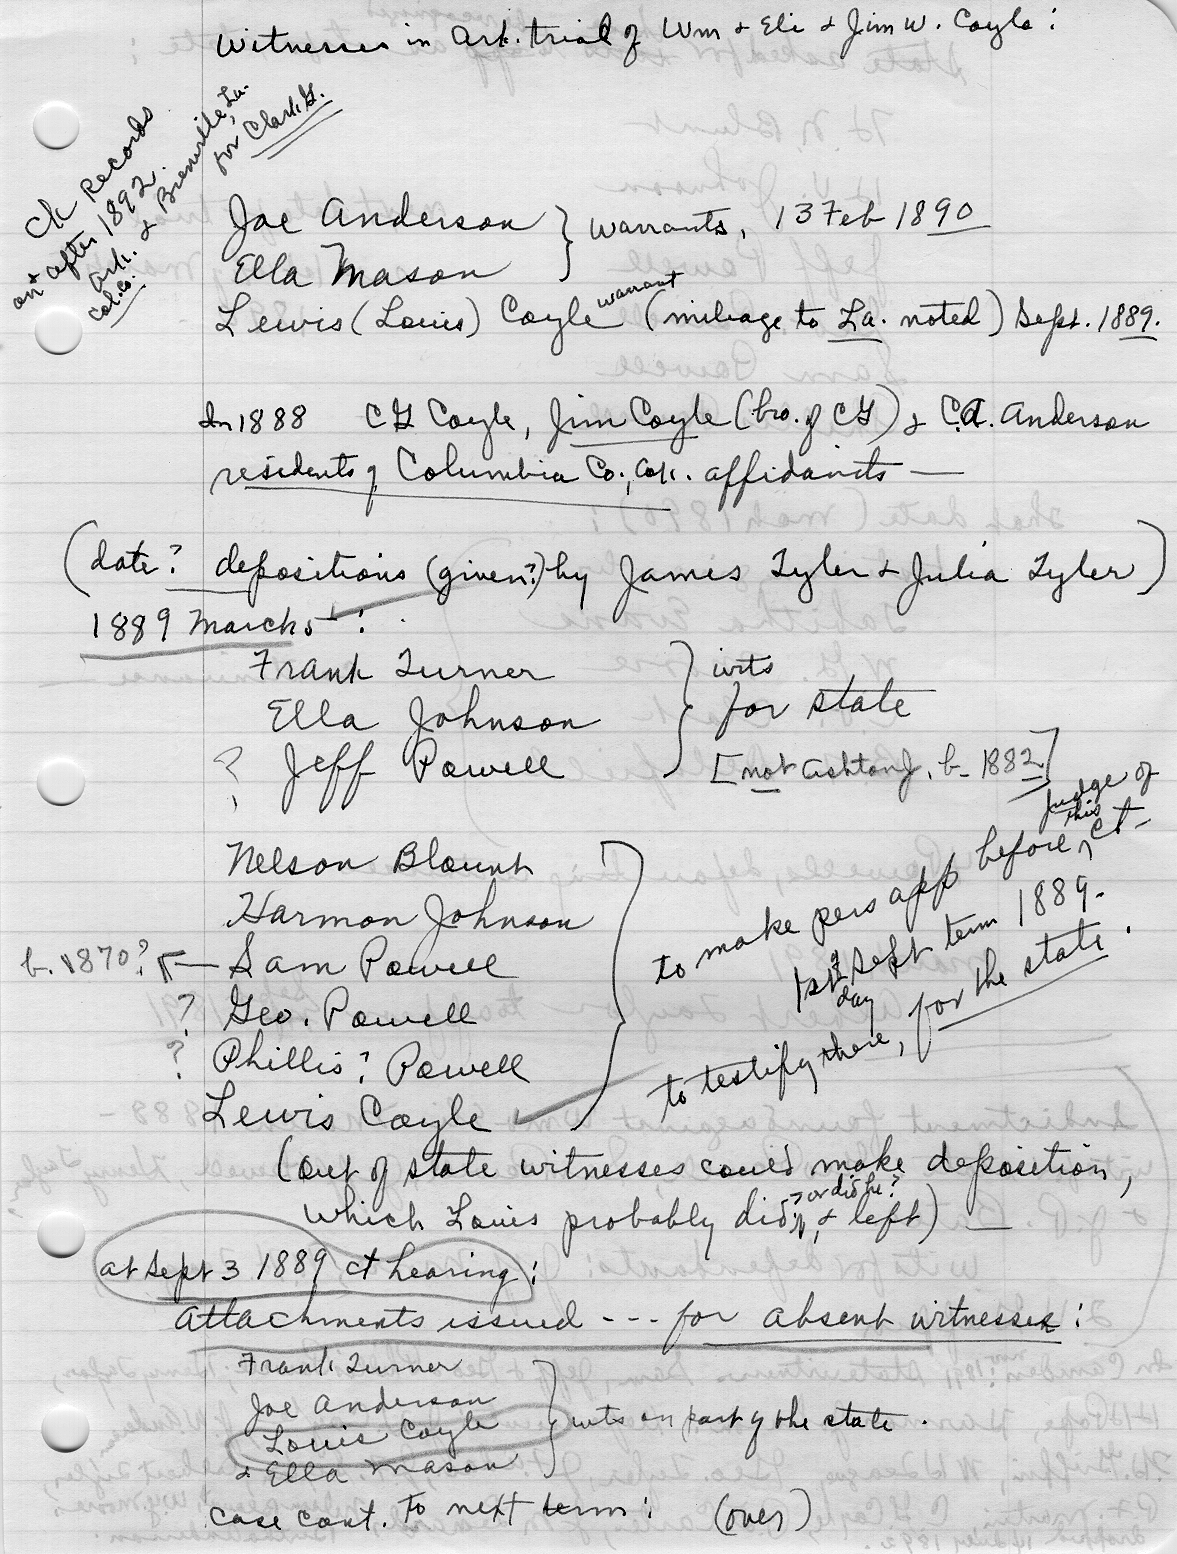 Witnesses in Ark. trial of Wm & Eli & Jim W. Coyle:
Ck Records
on & after 1892
Ark. & Bienville, La.
Col. Co. for Clark G.
Joe Anderson } warrants, 13 Feb 1890
Ella Mason
Lewis (Louis) Coyle warrant (mileage to La. noted) Sept. 1889.
In 1888 CG Coyle, Jim Coyle (bro. of CG) & C.A. Anderson
residents of Columbia Co., Ark. affidavits —
(date? depositions (given?) by James Tyler & Julia Tyler)
1889 March 5:
Frank Turner } wits
Ella Johnson for state
? Jeff Powell [not Ashton J. b. 1882]
Nelson Blount
Harmon Johnson
b. 1870? Sam Powell
? Geo. Powell
? Phillis? Powell
Lewis Coyle
to make pers app before judge of this ct -
1st day of Sept term 1889.
to testify there, for the state.
(out of state witnesses could make deposition,
which Louis probably did, & left) — or did he?
at Sept 3 1889 ct hearing:
attachments issued --- for absent witnesses:
Frank Turner
Joe Anderson
Louis Coyle } wits on part of the state.
& Ella Mason
Case cont. to next term: (over)